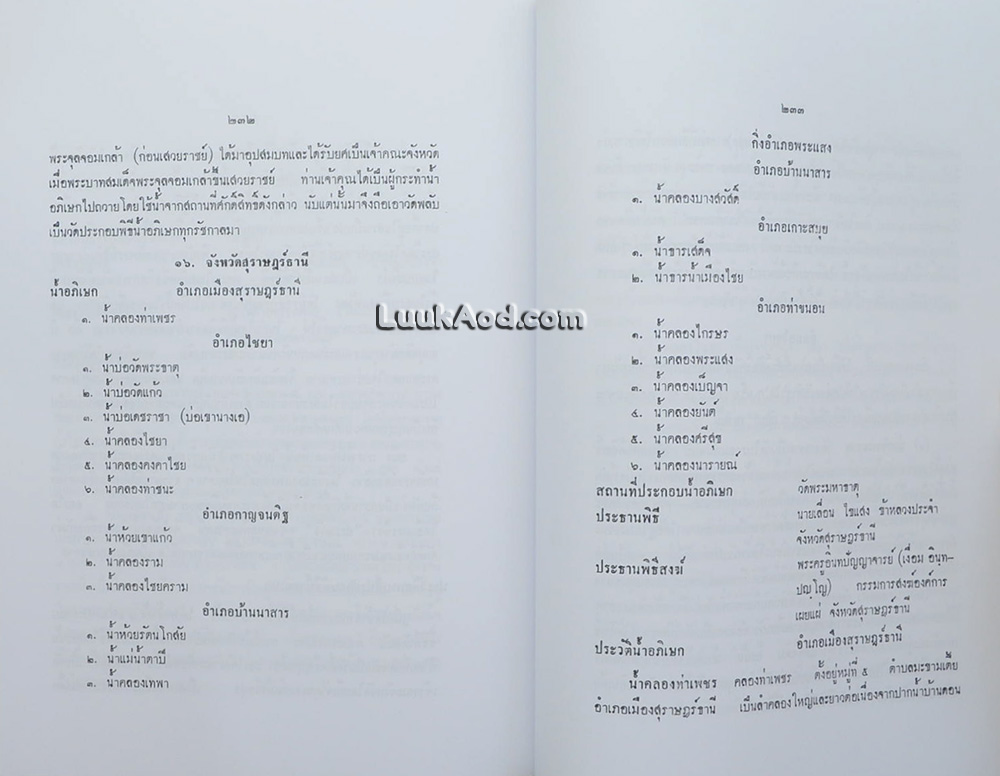 ๒๓๒
พระจุลจอมเกล้า (ก่อนเสวยราชย์) ได้มาอุปสมบทและได้รับยศเป็นเจ้าคณะจังหวัด
เมื่อพระบาทสมเด็จพระจุลจอมเกล้าขึ้นเสวยราชย์ ท่านเจ้าคุณได้เป็นผู้กระทำน้ำ
อภิเษกไปถวายโดยใช้น้ำจากสถานที่ศักดิ์สิทธิ์ดังกล่าว นับแต่นั้นมาจึงถือเอาวัดพลับ
เป็นวัดประกอบพิธีน้ำอภิเษกทุกรัชกาลมา
๑๖. จังหวัดสุราษฎร์ธานี
น้ำอภิเษก อำเภอเมืองสุราษฎร์ธานี
๑. น้ำคลองท่าเพชร
อำเภอไชยา
๑. น้ำบ่อวัดพระธาตุ
๒. น้ำบ่อวัดแก้ว
๓. น้ำบ่อเดชราชา (บ่อเขานางเอ)
๔. น้ำคลองไชยา
๕. น้ำคลองคงคาไชย
๖. น้ำคลองท่าชนะ
อำเภอกาญจนดิฐ
๑. น้ำห้วยเขาแก้ว
๒. น้ำคลองราม
๓. น้ำคลองไชยคราม
อำเภอบ้านนาสาร
๑. น้ำห้วยรัตนโกสัย
๒. น้ำแม่น้ำตาปี
๓. น้ำคลองเทพา
LuukAod.com
๒๓๓
กิ่งอำเภอพระแสง
อำเภอบ้านนาสาร
๑. น้ำคลองบางสวัสดิ์
อำเภอเกาะสมุย
๑. น้ำธารเสด็จ
๒. น้ำธารน้ำเมืองไชย
อำเภอท่าขนอน
๑. น้ำคลองไกรษร
๒. น้ำคลองพระแสง
๓. น้ำคลองเบ็ญจา
๔. น้ำคลองยันต์
๕. น้ำคลองศรีสุข
๖. น้ำคลองนารายณ์
สถานที่ประกอบน้ำอภิเษก วัดพระมหาธาตุ
ประธานพิธี นายเลื่อน ไขแสง ข้าหลวงประจำ
จังหวัดสุราษฎร์ธานี
ประธานพิธีสงฆ์ พระครูอินทปัญญาจารย์ (เงื่อม อินฺท-
ปญฺโญ) กรรมการสงฆ์องค์การ
เผยแผ่ จังหวัดสุราษฎร์ธานี
ประวัติน้ำอภิเษก อำเภอเมืองสุราษฎร์ธานี
น้ำคลองท่าเพชร คลองท่าเพชร ตั้งอยู่หมู่ที่ ๕ ตำบลมะขามเตี้ย
อำเภอเมืองสุราษฎร์ธานี เป็นลำคลองใหญ่และยาวต่อเนื่องจากปากน้ำบ้านดอน